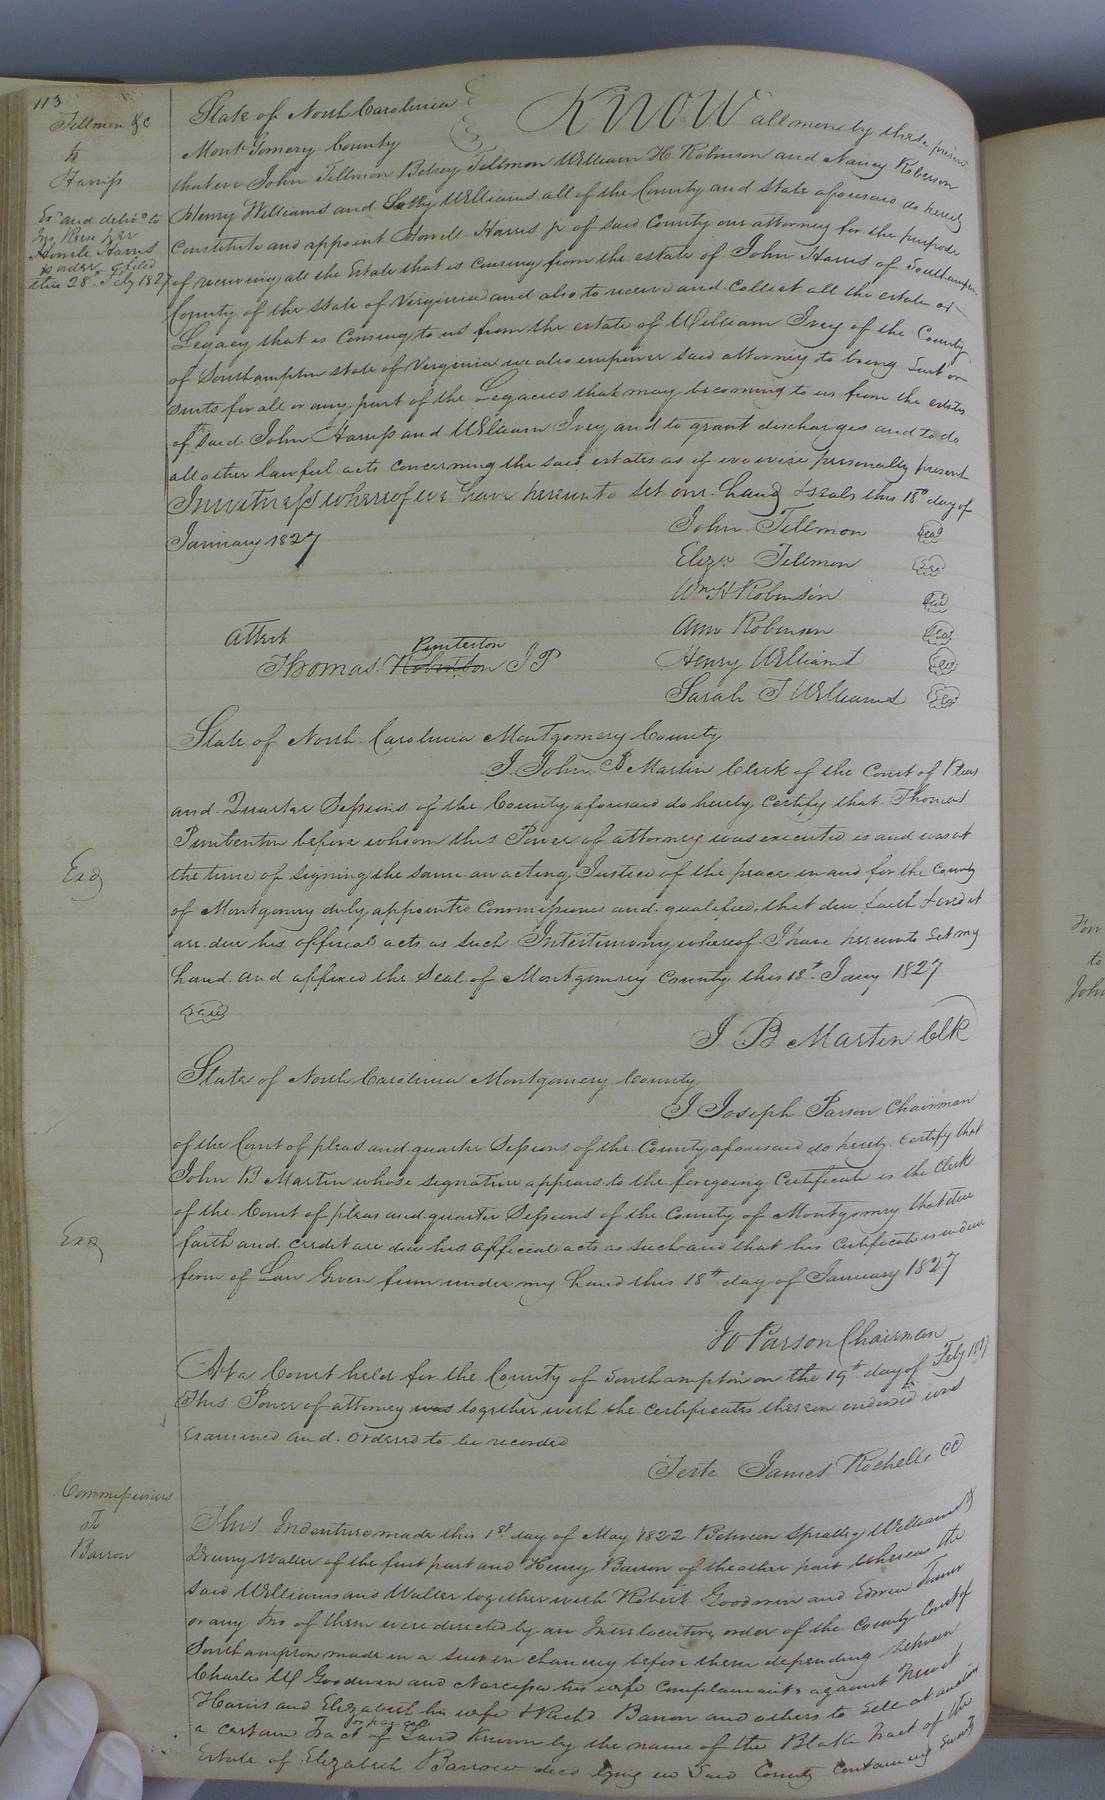 113
Tillmon &c
to
Harriss
Exd and delivd to
Jno Reese per
Howell Harris
order filed
this 28th Feby 1827
State of North Carolinia
Montgomery County
KNOW all men by these presents
that we John Tillmon Betsey Tillmon William H. Robinson and Nancy Roberson
Henry Williams and Sally Williams all of the County and State aforesaid do hereby
Constitute and appoint Howell Harris Jr of said County our attorney for the purpose
of receiving all the Estate that is coming from the estate of John Harris of Southampton
County of the state of Virginia and also to receive and Collect all the estate or
Legacy that is Coming to us from the estate of William Ivey of the County
of Southampton state of Virginia we also empower said attorney to bring suit or
suits for all or any part of the Legacies that may be coming to us from the estates
of sd said John Harriss and William Ivey and to grant discharges and to do
all other lawful acts concerning the said estates as if we were personally present
In witness whereof we have hereunto set our hand & seals this 18th day of
January 1827
John Tillmon Seal
Eliza Tillmon Seal
Wm H Robinson Seal
Ann Robinson Seal
Henry Williams Seal
Sarah T Williams Seal
Attest
Pemberton
Thomas Robinson J P
State of North Carolinia Montgomery County
I. John B Martin Clerk of the Court of Pleas
and Quarter Sessions of the County aforesaid do hereby Certify that Thomas
Pemberton before whom this Power of attorney was executed is and was at
the time of signing the same an acting Justice of the peace in and for the County
of Montgomery duly appointed Commissioned and qualified, that due faith & credit
are due his official acts as such In testimony whereof I have hereunto Set my
hand and affixed the Seal of Montgomery County this 18th Jany 1827
Exd
Seal
J. B Martin Clk
State of North Carolinia Montgomery County
I Joseph Parson Chairman
of the Court of pleas and quarter Sessions of the County aforesaid do hereby certify that
John B Martin whose signature appears to the foregoing Certificate is the Clerk
of the Court of pleas and quarter Sessions of the County of Montgomery that due
faith and credit are due his official acts as such and that his certificate is in due
form of Law Given from under my hand this 18th day of January 1827
Exd
Jo Parson Chairman
At a Court held for the County of Southampton on the 19th day of Feby 1827
This Power of attorney was together with the certificates thereon endorsed was
Examined and ordered to be recorded
Teste James Rochelle CC
Commissioners
To
Barron
This Indenture made this 1st day of May 1822 Between Spratley Williams &
Drury Waller of the first part and Henry Barron of the other part Whereas the
said Williams and Waller together with Robert Goodwin and Edwin Turner
or any two of them were directed by an Interlocutory order of the County Court of
Southampton made in a suit in chancery before them depending between
Charles W Goodwin and Narcissa his wife Complainants against
Harris and Elizabeth his wife & Richd Barron and others to sell at auction
or parcel
a certain Tract of Land Known by the name of the Blake Tract of the
Estate of Elizabeth Barrow decd lying in Said County Containing
to
John